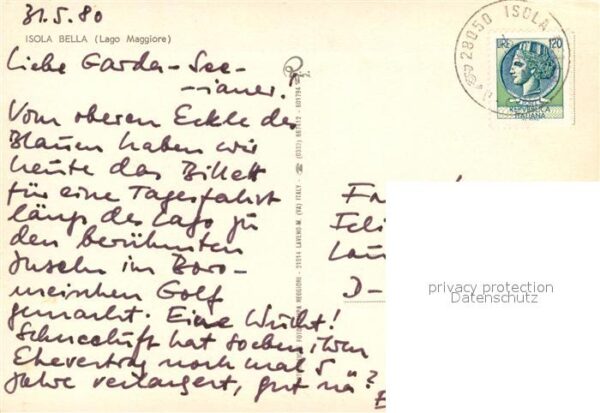 31.5.80
ISOLA BELLA (Lago Maggiore)
Liebe Garda-See-
-ianer!
Vom oberen Eckle des
Blauen haben wir
heute das Billett
für eine Tagesfahrt
längs des Lago zu
den berühmten
Inseln im Boro-
meischen Golf
gemacht. Eine Wucht!
hat soeben ihren
Ehevertrag noch mal 5
Jahre verlängert, gut nä?
28050 ISOLA
LIRE 120
REPVBBLICA
ITALIANA
21014 LAVENO-M. (VA) ITALY
Fa
Feli
D-
privacy protection
Datenschutz